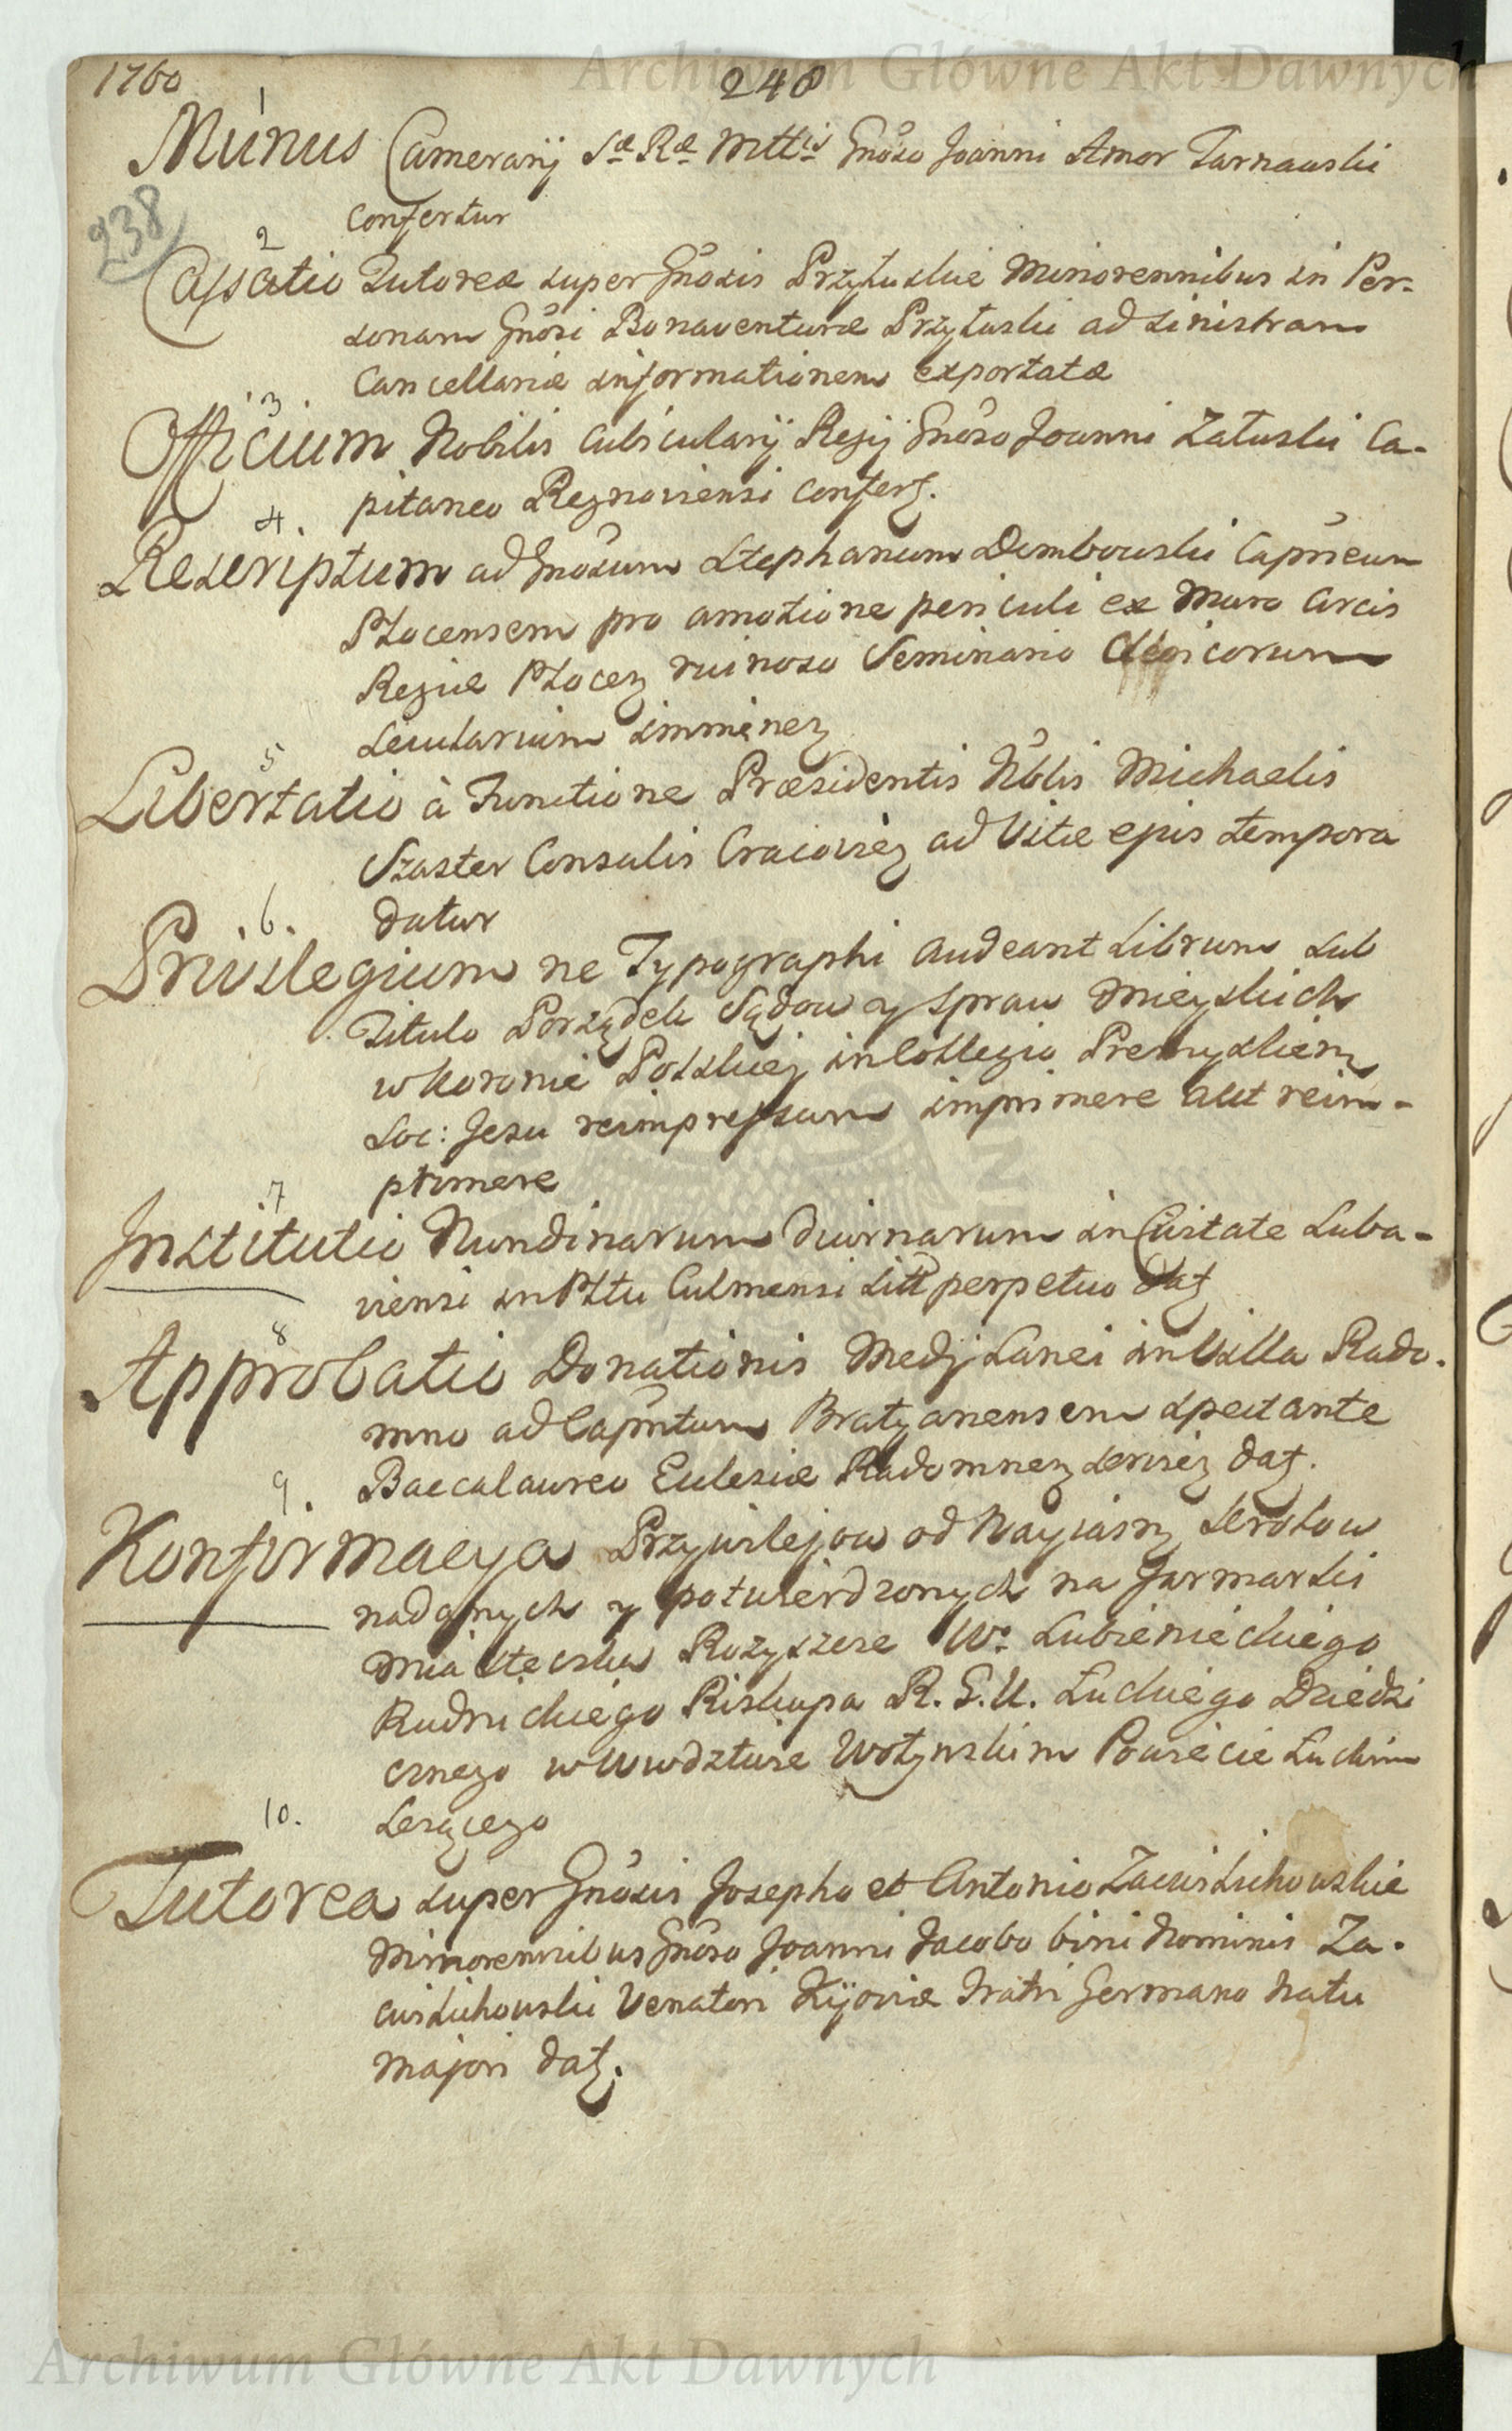 Archiwum Główne Akt Dawnych
1760 248
1
Munus Camerarij Sæ Ræ Mttis Gnoso Joanni Amor Tarnawski
confertur
238
2
Cassatio Tutoreæ super Gnosis Przyłuskie Minorennibus in Per-
sonam Gnosi Bonaventuræ Przyłuski ad sinistram
Cancellariæ informationem exportatæ
3.
Officium Nobilis Cubicularij Regij Gnoso Joanni Załuski Ca-
pitaneo Regnoviensi confert.
4.
Rescriptum ad Gnosum Stephanum Dembowski Capneum
Płocensem pro amotione periculi ex Muro Arcis
Regiæ Płocen ruinoso Seminario Clericorum
secularium imminen
5
Libertatio à Functione Præsidentis Nblis Michaelis
Szaster Consulis Cracovien ad Vitæ ejus tempora
datur
.6.
Privilegium ne Typographi audeant Librum sub
Titulo Porządek Sądow y spraw Mieyskich
w Koronie Polskiej in Collegio Premyslien
Soc: Jesu reimpressum imprimere aut reim-
primere
7
Institutio Nundinarum diurnarum in Civitate Luba-
viensi in Pltu Culmensi sitt perpetuo dat
8
Approbatio Donationis Medij Lanei in Villa Rado-
mno ad Capntum Bratyanensem spectante
Baccalaureo Eclesiæ Radomnen servien dat.
9.
Konfirmacya Przywilejow od Nayiasn Krolow
nadanych y potwierdzonych na Jarmarki
Miasteczku Rozyszcze Wo Lubienieckiego
Rudnickiego Biskupa R. G. U. Łuckiego Dziedzi
cznego w Wwdztwie Wołynskim Powiecie Łuckim
10.
Lezącego
Tutorea super Gnosis Josepho et Antonio Zacwilichowskie
Minorennibus Gnoso Joanni Jacobo bini Nominis Za-
cwilichowski Venatori Kijoviæ Fratri Germano Natu
Majori dat.
Archiwum Główne Akt Dawnych